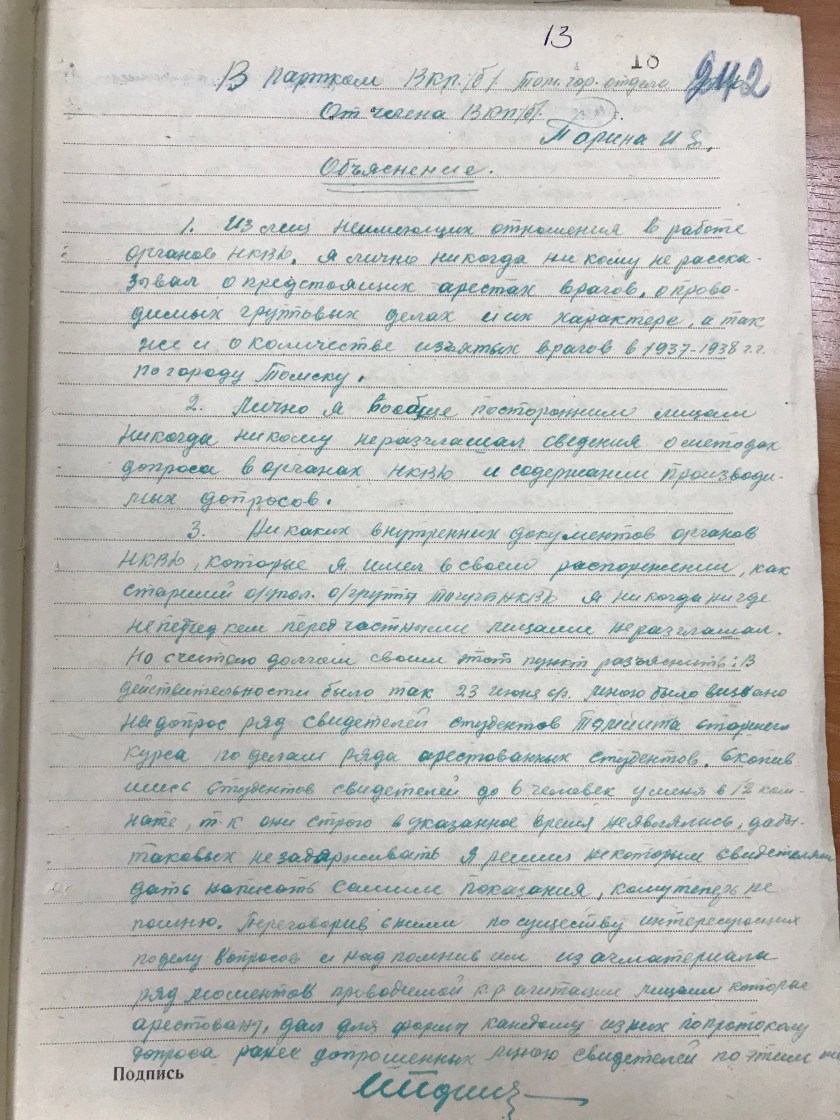 13
18
242
В партком ВКП/б/ Том. гор. отдела
От члена ВКП/б/
Марина И З.
Объяснение.
1. Из лиц неимеющих отношения в работе
органов НКВД. Я лично никогда ни кому не расска-
зывал о предстоящих арестах врагов, о прово-
димых групповых делах и их характере, а так
же и о количестве изъятых врагов в 1937-1938 г.г.
по городу Томску.
2. Лично я вообще посторонним лицам
никогда никому неразглашал сведения о методах
допроса в органах НКВД и содержании производи-
мых допросов.
3. Никаких внутренних документов органов
НКВД, которые я имел в своем распоряжении, как
старший о/упол. о/группы НКВД я никогда нигде
не перед кем перед частными лицами неразглашал.
Но считаю долгом своим этот пункт разъяснить: В
действительности было так 23 июня с/г. мною было вызвано
на допрос ряд свидетелей студентов старшего
курса по делам ряда арестованных студентов. Скопив
шись студентов свидетелей до 6 человек у меня в 12 ком-
нате, т-к они строго в указанное время неявлялись, дабы
таковых незадерживать я решил некоторым свидетелям
дать написать самим показания, кому теперь не
помню. Переговорив с ними по существу интересующих
по делу вопросов и над помнив им из а/материала
ряд моментов проводимой к р агитации лицами которые
арестованы, дал для формы каждому из них по протоколу
допроса ранее допрошенных мною свидетелей по этим же
Подпись